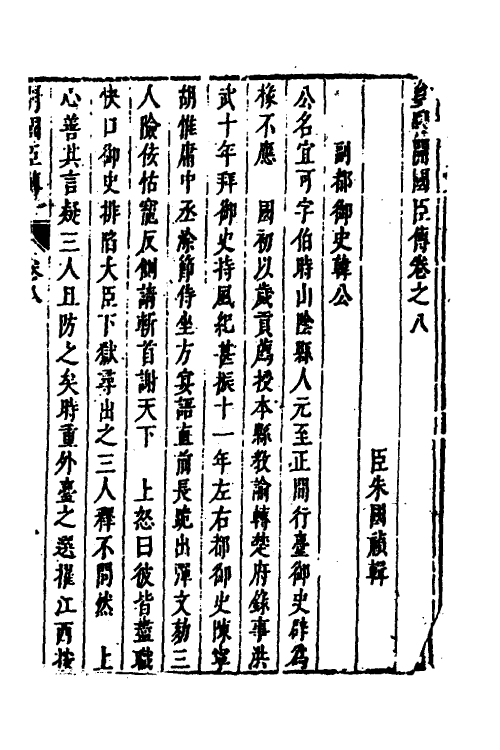 皇明開國臣傳卷之八
臣朱國禎輯
副都御史韓公
公名宜可字伯時山陰縣人元至正間行臺御史辟爲
掾不應 國初以歲貢薦授本縣教諭轉楚府錄事洪
武十年拜御史持風紀甚振十一年左右都御史陳寧
胡惟庸中丞涂節侍坐方宴語直前長跪出彈文劾三
人險佞怙寵反側請斬首謝天下 上怒曰彼皆盡職
快口御史排陷大臣下獄尋出之三人釋不問然 上
心善其言疑三人且防之矣時重外臺之選擢江西按
開國臣傳 卷八